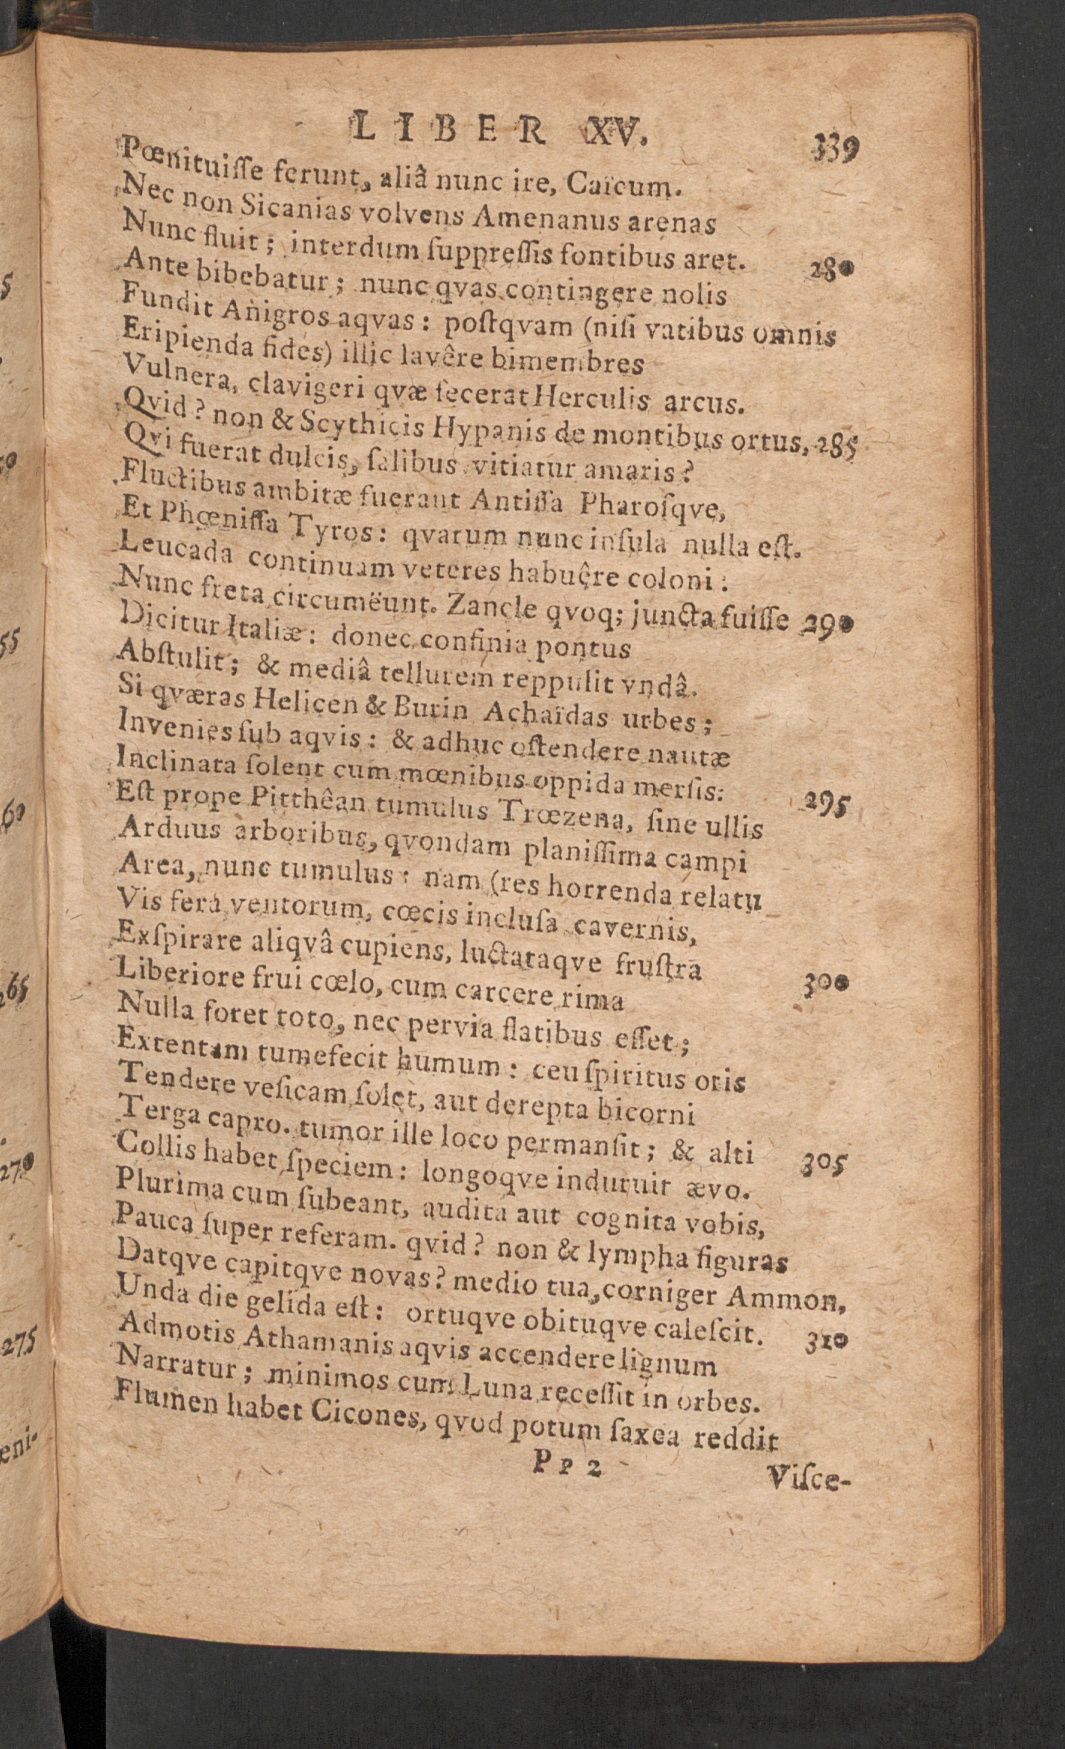 LIBER XV. 339
Pœnituiſſe ferunt, aliâ nunc ire, Caïcum.
Nec non Sicanias volvens Amenanus arenas
Nunc fluit; interdum ſuppreſſis fontibus aret. 280
Ante bibebatur; nunc qvas contingere nolis
Fundit Anigros aqvas: poſtqvam (niſi vatibus omnis
Eripienda fides) illic lavêre bimembres
Vulnera, clavigeri qvæ fecerat Herculis arcus.
Qvid? non & Scythicis Hypanis de montibus ortus, 285
Qvi fuerat dulcis, ſalibus vitiatur amaris?
Fluctibus ambitæ fuerant Antiſſa Pharoſqve,
Et Phœniſſa Tyros: qvarum nunc inſula nulla eſt.
Leucada continuam veteres habuêre coloni:
Nunc freta circumëunt. Zancle qvoq; juncta fuiſſe 290
Dicitur Italiæ: donec confinia pontus
Abſtulit; & mediâ tellurem reppulit vndâ.
Si qværas Helicen & Burin Achaïdas urbes;
Invenies ſub aqvis: & adhuc oſtendere nautæ
Inclinata ſolent cum mœnibus oppida merſis: 295
Eſt prope Pitthêan tumulus Trœzena, ſine ullis
Arduus arboribus, qvondam planiſſima campi
Area, nunc tumulus: nam (res horrenda relatu
Vis fera ventorum, cœcis incluſa cavernis,
Exſpirare aliqvâ cupiens, luctataqve fruſtra 300
Liberiore frui cœlo, cum carcere rima
Nulla foret toto, nec pervia flatibus eſſet;
Extentam tumefecit humum: ceu ſpiritus oris
Tendere veſicam ſolet, aut derepta bicorni
Terga capro. tumor ille loco permanſit; & alti 305
Collis habet ſpeciem: longoqve induruit ævo.
Plurima cum ſubeant, audita aut cognita vobis,
Pauca ſuper referam. qvid? non & lympha figuras
Datqve capitqve novas? medio tua, corniger Ammon,
Unda die gelida eſt: ortuqve obituqve caleſcit. 310
Admotis Athamanis aqvis accendere lignum
Narratur; minimos cum Luna receſſit in orbes.
Flumen habet Cicones, qvod potum ſaxea reddit
Pp 2 Viſce-
5
50
55
60
265
270
275
eni-